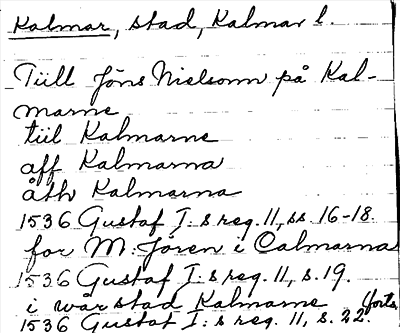 Kalmar, stad, Kalmar l.
Tiill Jöns Nielsonn på Kal-
marne
tiil Kalmarne
aff Kalmarna
åth Kalmarna
1536 Gustaf I:s reg. 11, ss. 16-18.
for M. Jören i Calmarna
1536 Gustaf I:s reg. 11, s. 19.
i wår stad Kalmarne
1536 Gustaf I:s reg. 11, s. 22. forts.